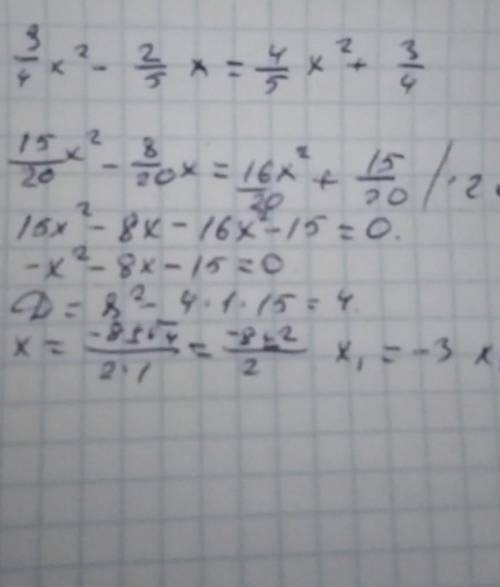 3/4 x² - 2/5 x = 4/5 x² + 3/4
15/20 x² - 8/20 x = 16x²/20 + 15/20 / · 2
15x² - 8x - 16x² - 15 = 0.
-x² - 8x - 15 = 0
D = 8² - 4 · 1 · 15 = 4.
x = -8 ± √4 / 2 · 1 = -8 ± 2 / 2 x₁ = -3 x